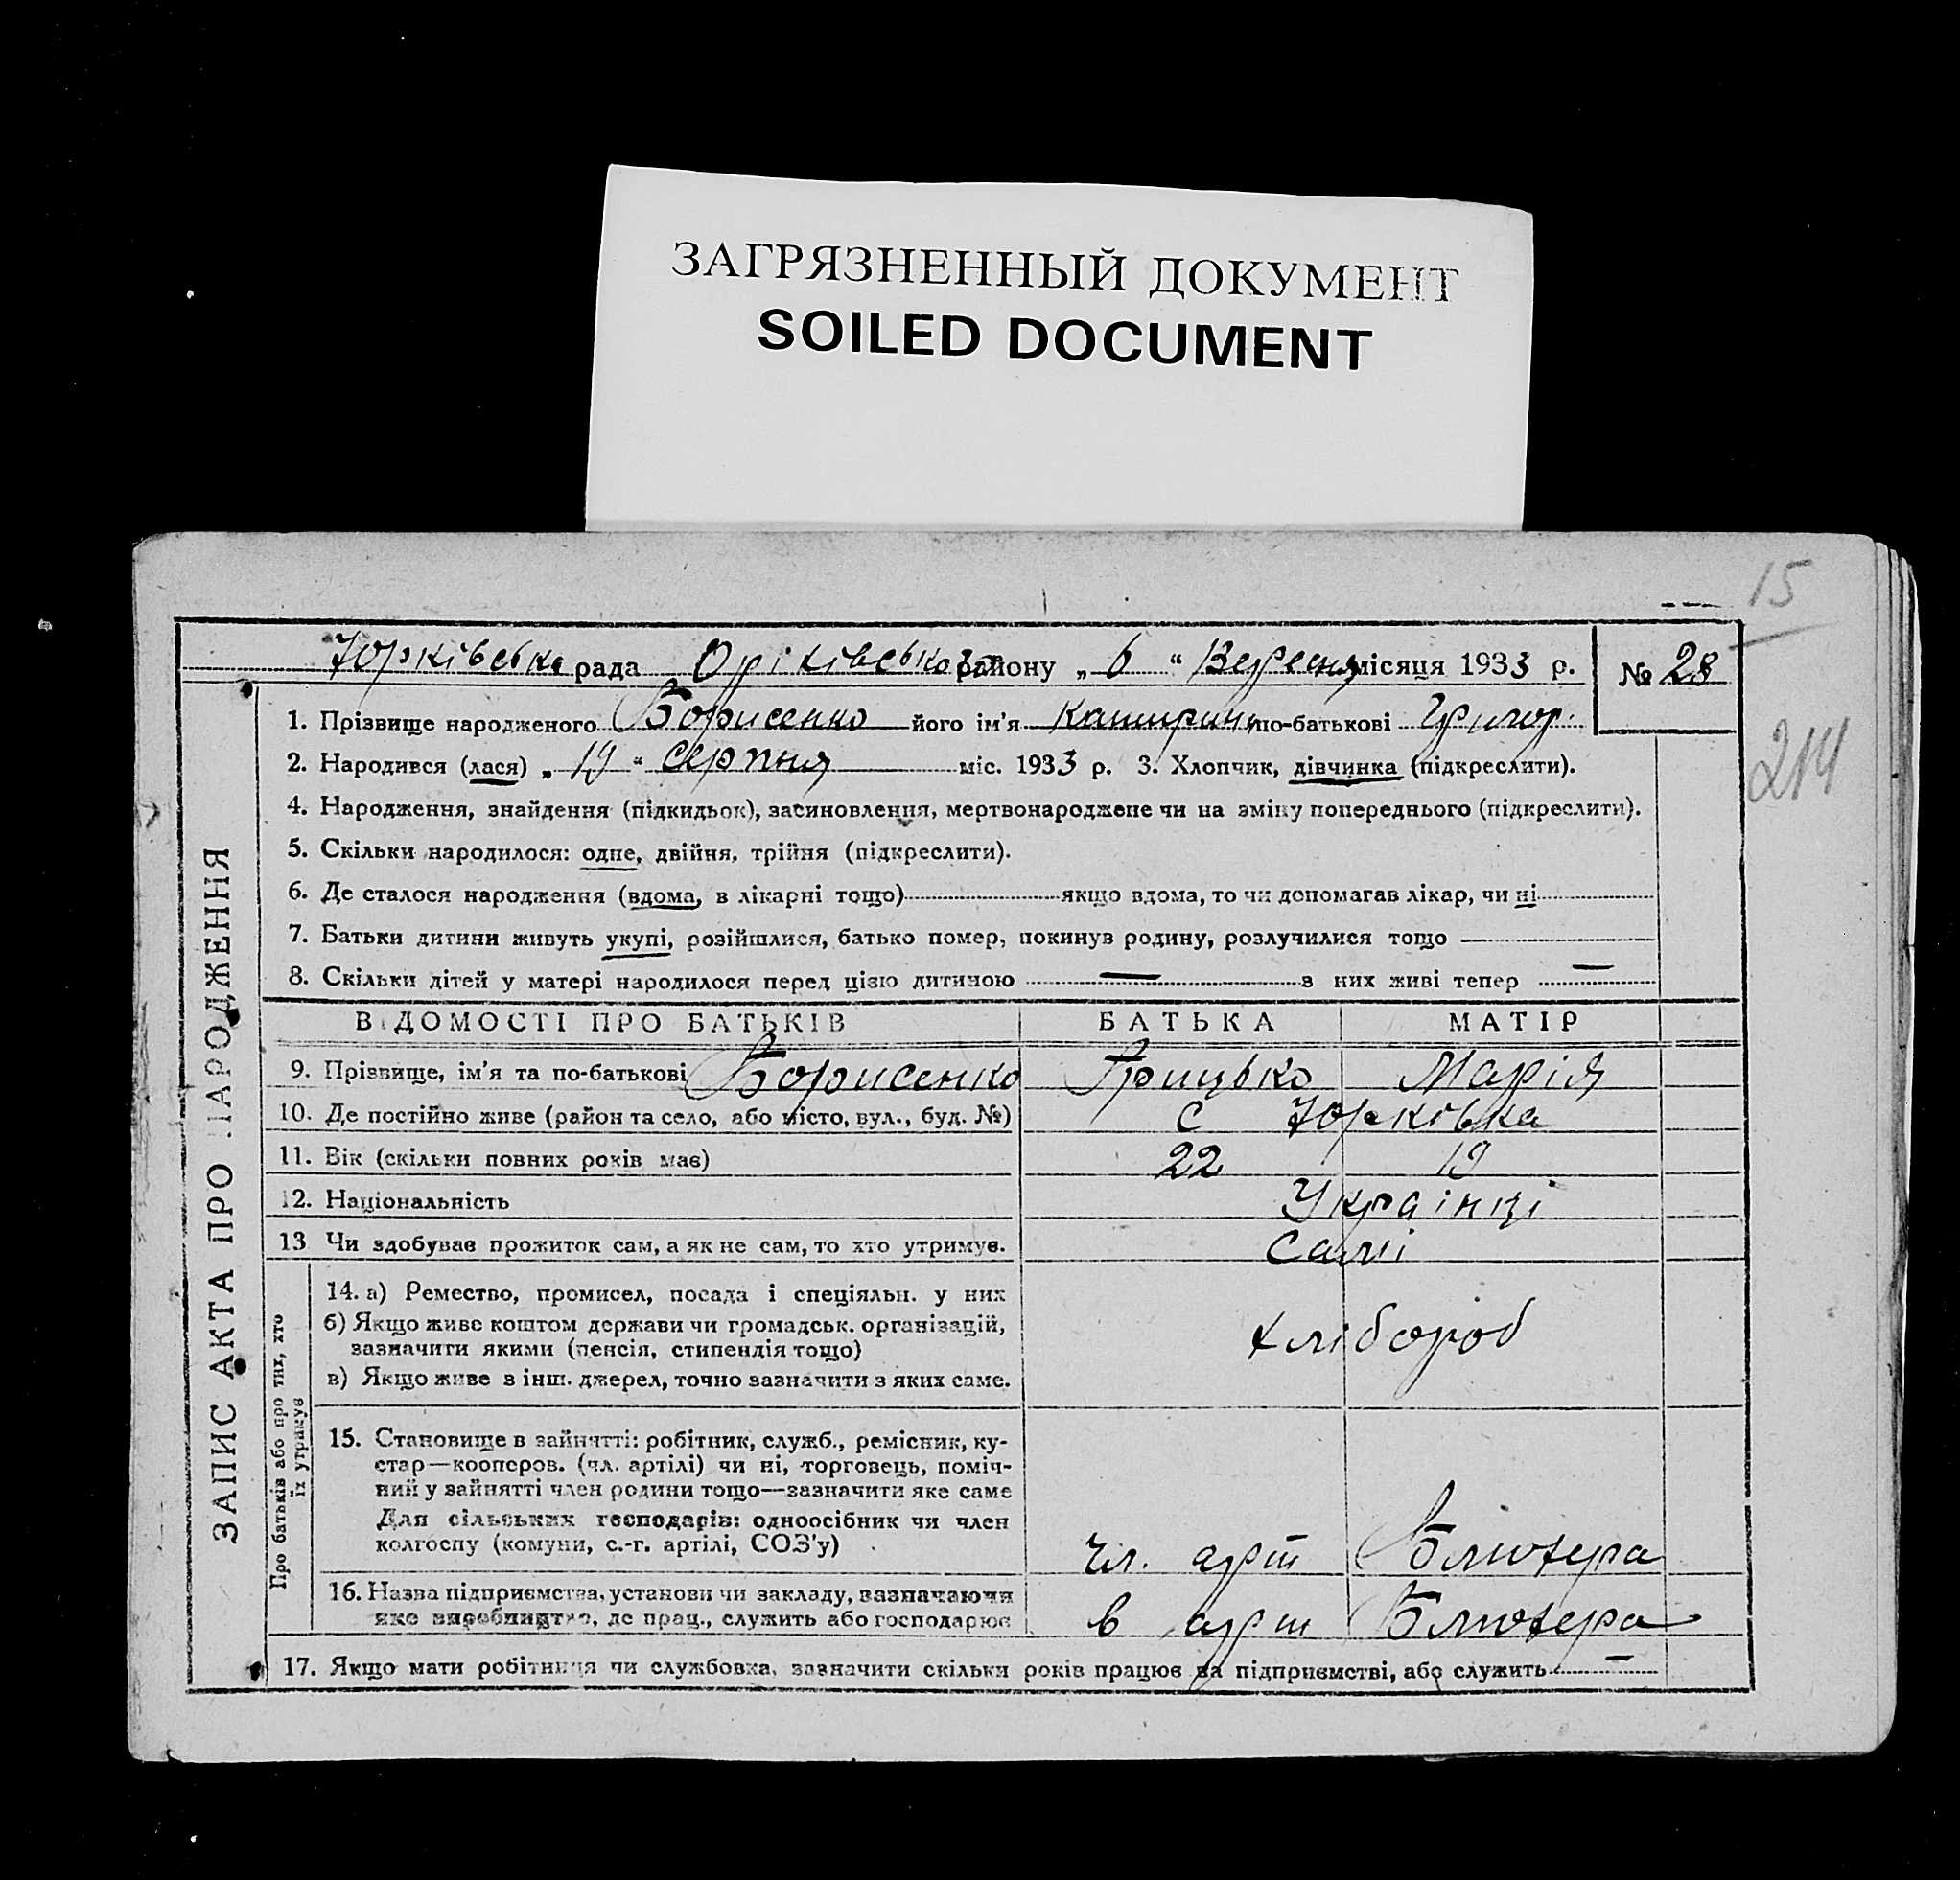 ЗАГРЯЗНЕННЫЙ ДОКУМЕНТ
SOILED DOCUMENT
15
Юрківська рада Оріхівського району „ 6 “ Вересня місяця 1933 р. № 28
1. Прізвище народженого Борисенко його ім’я Катирина по-батькові Григор.
214
2. Народився (лася) „ 19 “ серпня міс. 1933 р. 3. Хлопчик, дівчинка (підкреслити).
4. Народження, знайдення (підкидьок), засиновлення, мертвонароджене чи на зміну попереднього (підкреслити).
5. Скільки народилося: одне, двійня, трійня (підкреслити).
6. Де сталося народження (вдома, в лікарні тощо) якщо вдома, то чи допомагав лікар, чи ні
7. Батьки дитини живуть укупі, розійшлися, батько помер, покинув родину, розлучилися тощо —
8. Скільки дітей у матері народилося перед цією дитиною — з них живі тепер —
ВІДОМОСТІ ПРО БАТЬКІВ БАТЬКА МАТІР
9. Прізвище, ім’я та по-батькові Борисенко Грицько Марія
10. Де постійно живе (район та село, або місто, вул., буд. №) с Юрківка
11. Вік (скільки повних років має) 22 19
12. Національність Українці
13 Чи здобуває прожиток сам, а як не сам, то хто утримує. Самі
14. а) Ремество, промисел, посада і спеціяльн. у них
б) Якщо живе коштом держави чи громадськ. організацій,
зазначити якими (пенсія, стипендія тощо)
хлібороб
в) Якщо живе з інш. джерел, точно зазначити з яких саме.
15. Становище в зайнятті: робітник, служб., ремісник, ку-
стар—кооперов. (чл. артілі) чи ні, торговець, поміч-
ний у зайнятті член родини тощо—зазначити яке саме
Для сільських господарів: одноосібник чи член
колгоспу (комуни, с.-г. артілі, СОЗ’у) чл. арт Блюхера
16. Назва підприємства, установи чи закладу, зазначаючи
яке виробництво, де прац., служить або господарює в арт Блюхера
17. Якщо мати робітниця чи службовка, зазначити скільки років працює на підприємстві, або служить —
ЗАПИС АКТА ПРО НАРОДЖЕННЯ
Про батьків або про тих, хто
їх утримує